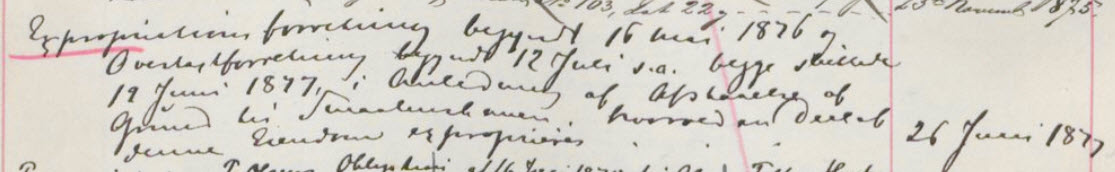 103, dat 22 23de November 1875.
Expropriationsforretning begyndt 16 mai 1876 og
Overtaxtforretning begyndt 12 Juli s.a. begge sluttede
19 Juni 1877, i Anledning af Afstaaelse af
Grund til Smaalensbanen, hvorved en Deel af
denne Eiendom exproprieres 26 Juni 1877
Obligation af